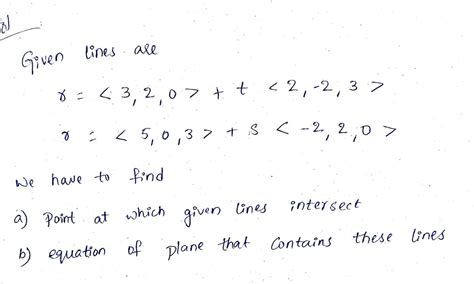 Given lines are
r = < 3, 2, 0 > + t < 2, -2, 3 >
r = < 5, 0, 3 > + s < -2, 2, 0 >
We have to find
a) Point at which given lines intersect
b) equation of plane that contains these lines